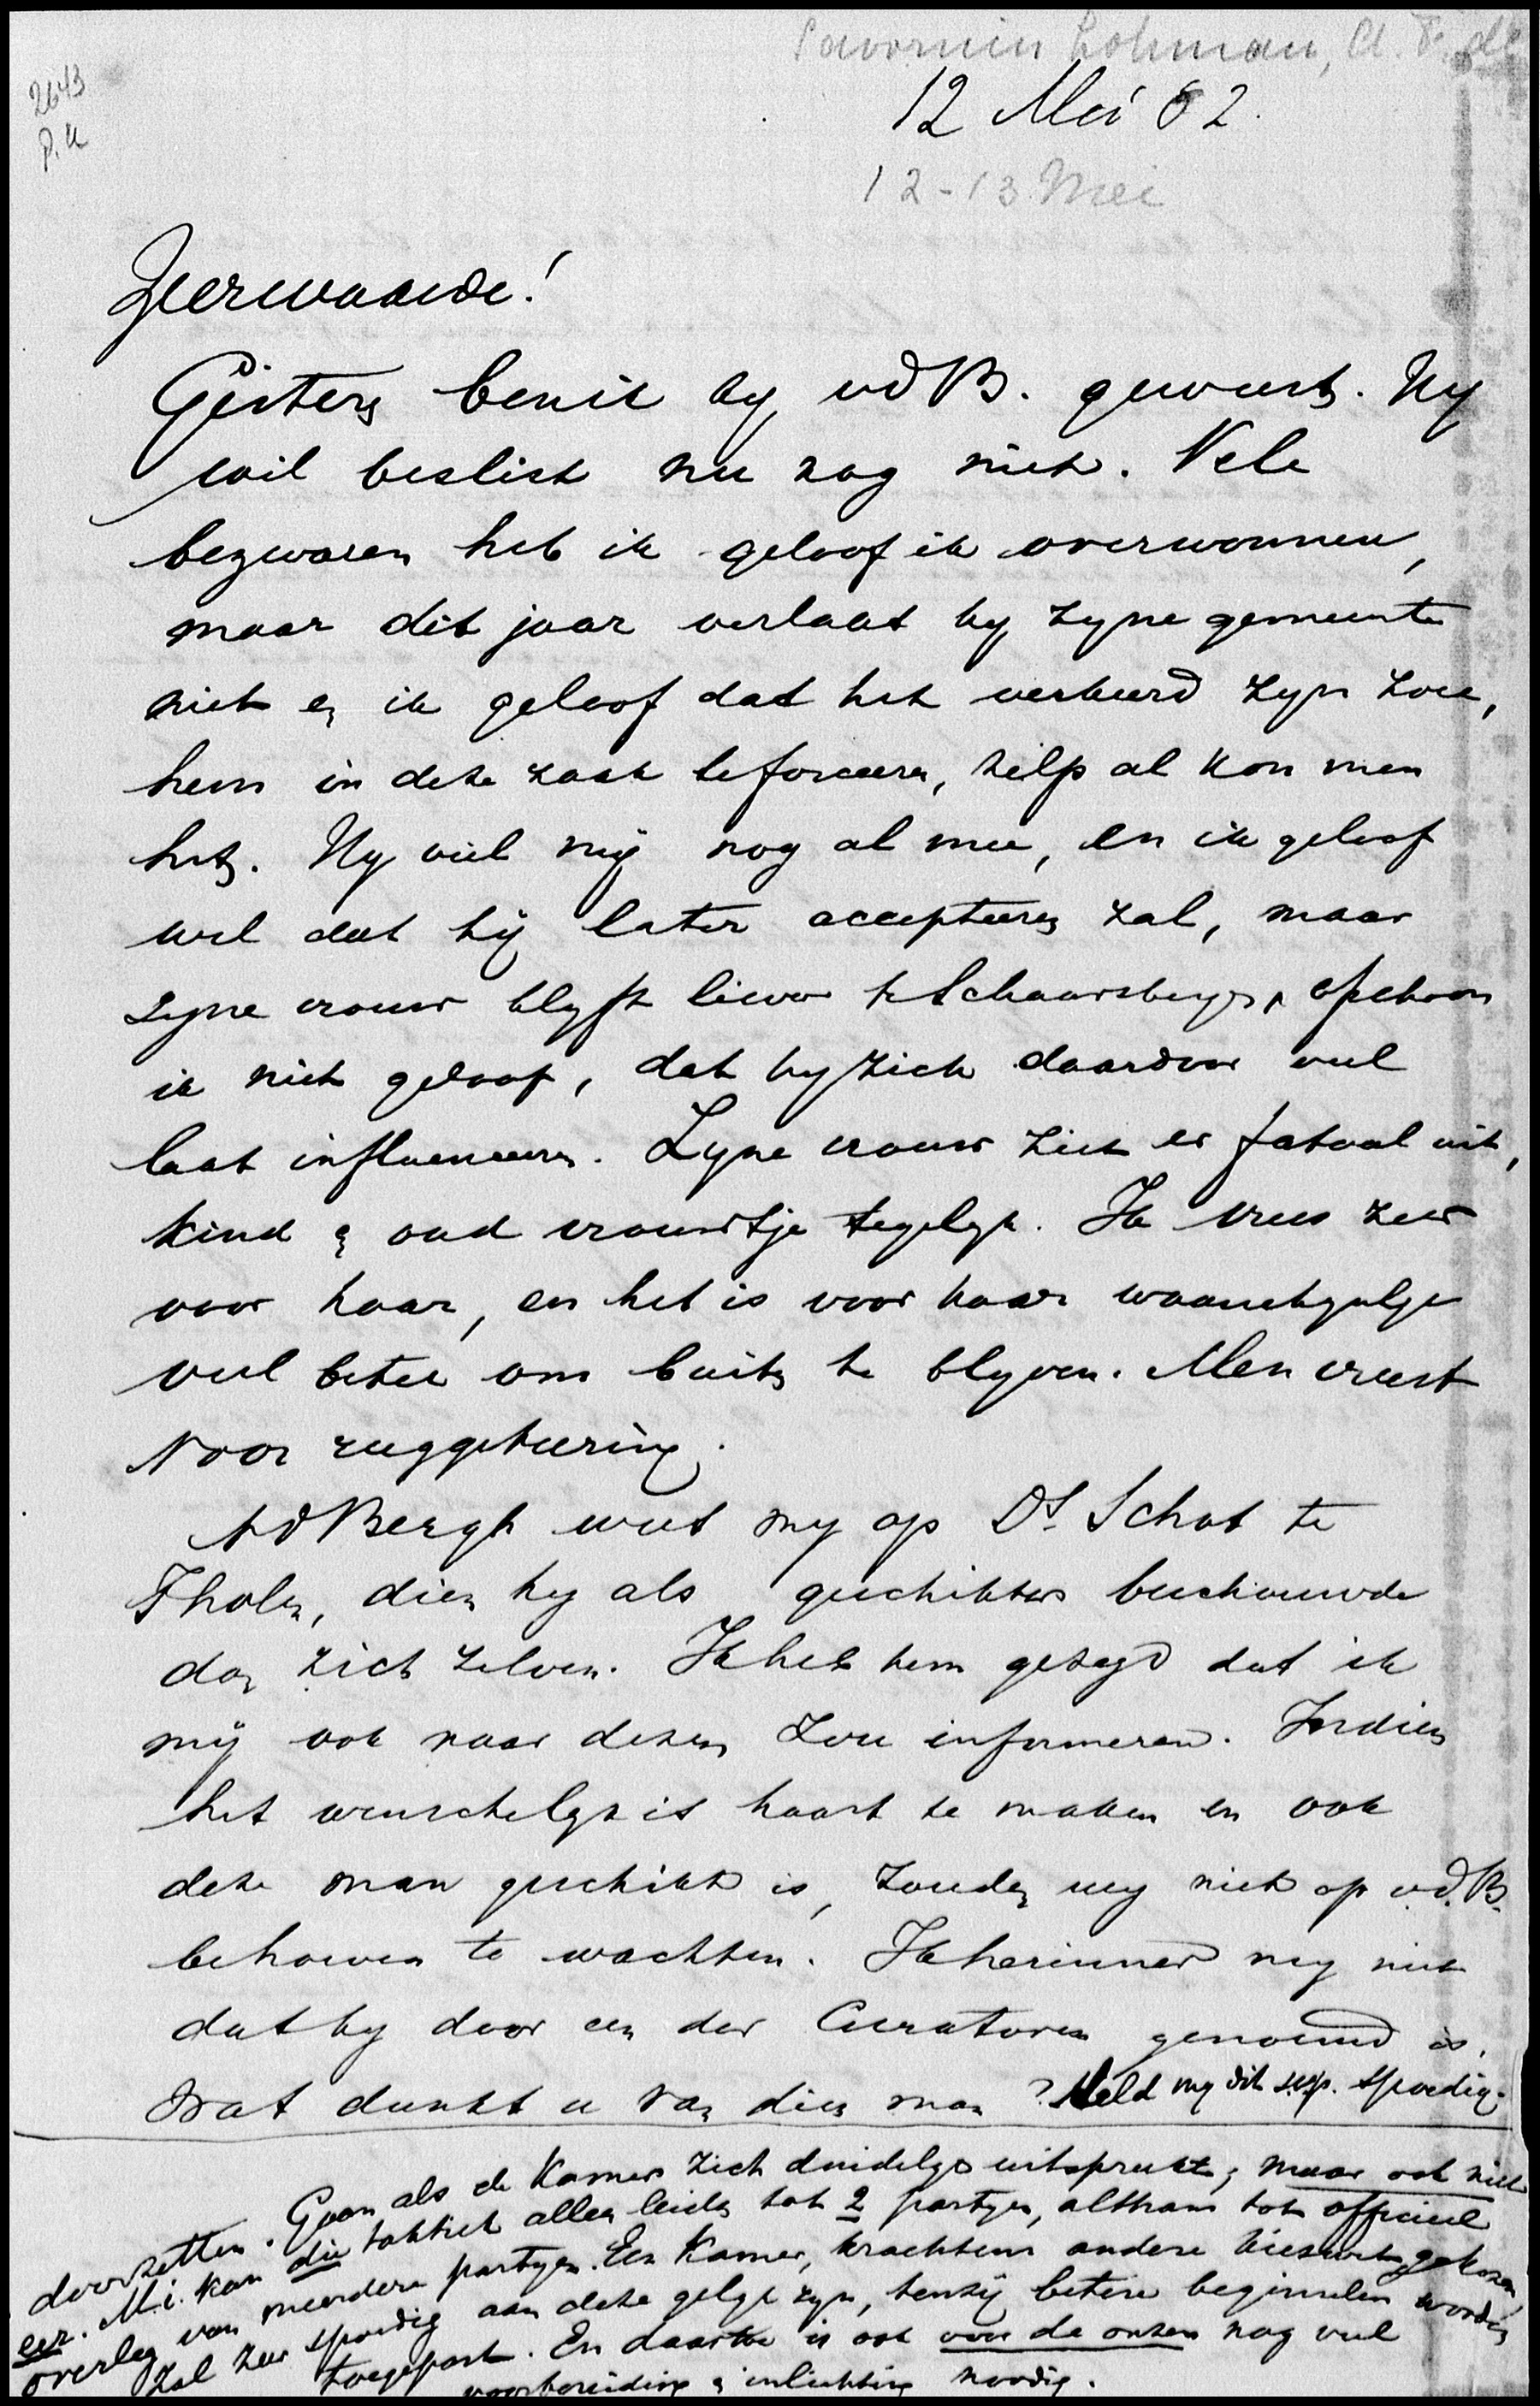 Savornin Lohman, A. F. de
2643
P. K
12 Mei 82.
12-13 Mei
Zeerwaarde!
Gisteren ben ik by vdB. geweest. Hy
wil beslist nu nog niet. Vele
bezwaren heb ik geloof ik overwonnen,
maar dit jaar verlaat hy zyne gemeente
niet en ik geloof dat het verkeerd zyn zou,
hem in deze zaak te forceeren, zelfs al kon men
het. Hy viel mij nog al mee, en ik geloof
wel dat hij later accepteeren zal, maar
zyne vrouw blyft liever te Schaarsbergen, ofschoon
ik niet geloof, dat hy zich daardoor veel
laat influenceeren. Zyne vrouw ziet er fataal uit,
kind & oud vrouwtje tegelyk. Ik vrees zeer
voor haar, en het is voor haar waarschynlyk
veel beter om buiten te blyven. Men vreest
voor ruggeteering.
vdBergh wees my op Ds. Schot te
Tholen, dien hy als geschikter beschouwde
dan zich zelven. Ik heb hem gezegd dat ik
mij ook naar dezen zou informeren. Indien
het wenschelyk is haast te maken en ook
deze man geschikt is, zouden wy niet op v.d.B.
behoeven te wachten. Ik herinner my niet
dat hy door een der Curatoren genoemd is.
Wat dunkt u van dien man? Meld my dit s.v.p. spoedig.
doorzetten. Gaan als de Kamer zich duidelyk uitspreekt; maar ook niet
eer. M.i. kan die taktiek alleen leiden tot 2 partyen, althans tot officieel
overleg van meerdere partyen. Een Kamer, krachtens andere kieswet gekozen,
zal zeer spoedig aan deze gelyk zyn, tenzij betere beginselen worden
toegepast. En daartoe is ook voor de onzen nog veel
voorbereiding & inlichting noodig.